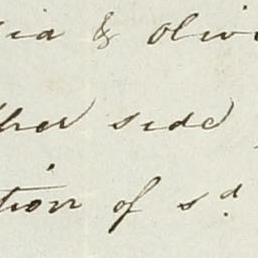 ia & Oliv
her side
tion of sd.